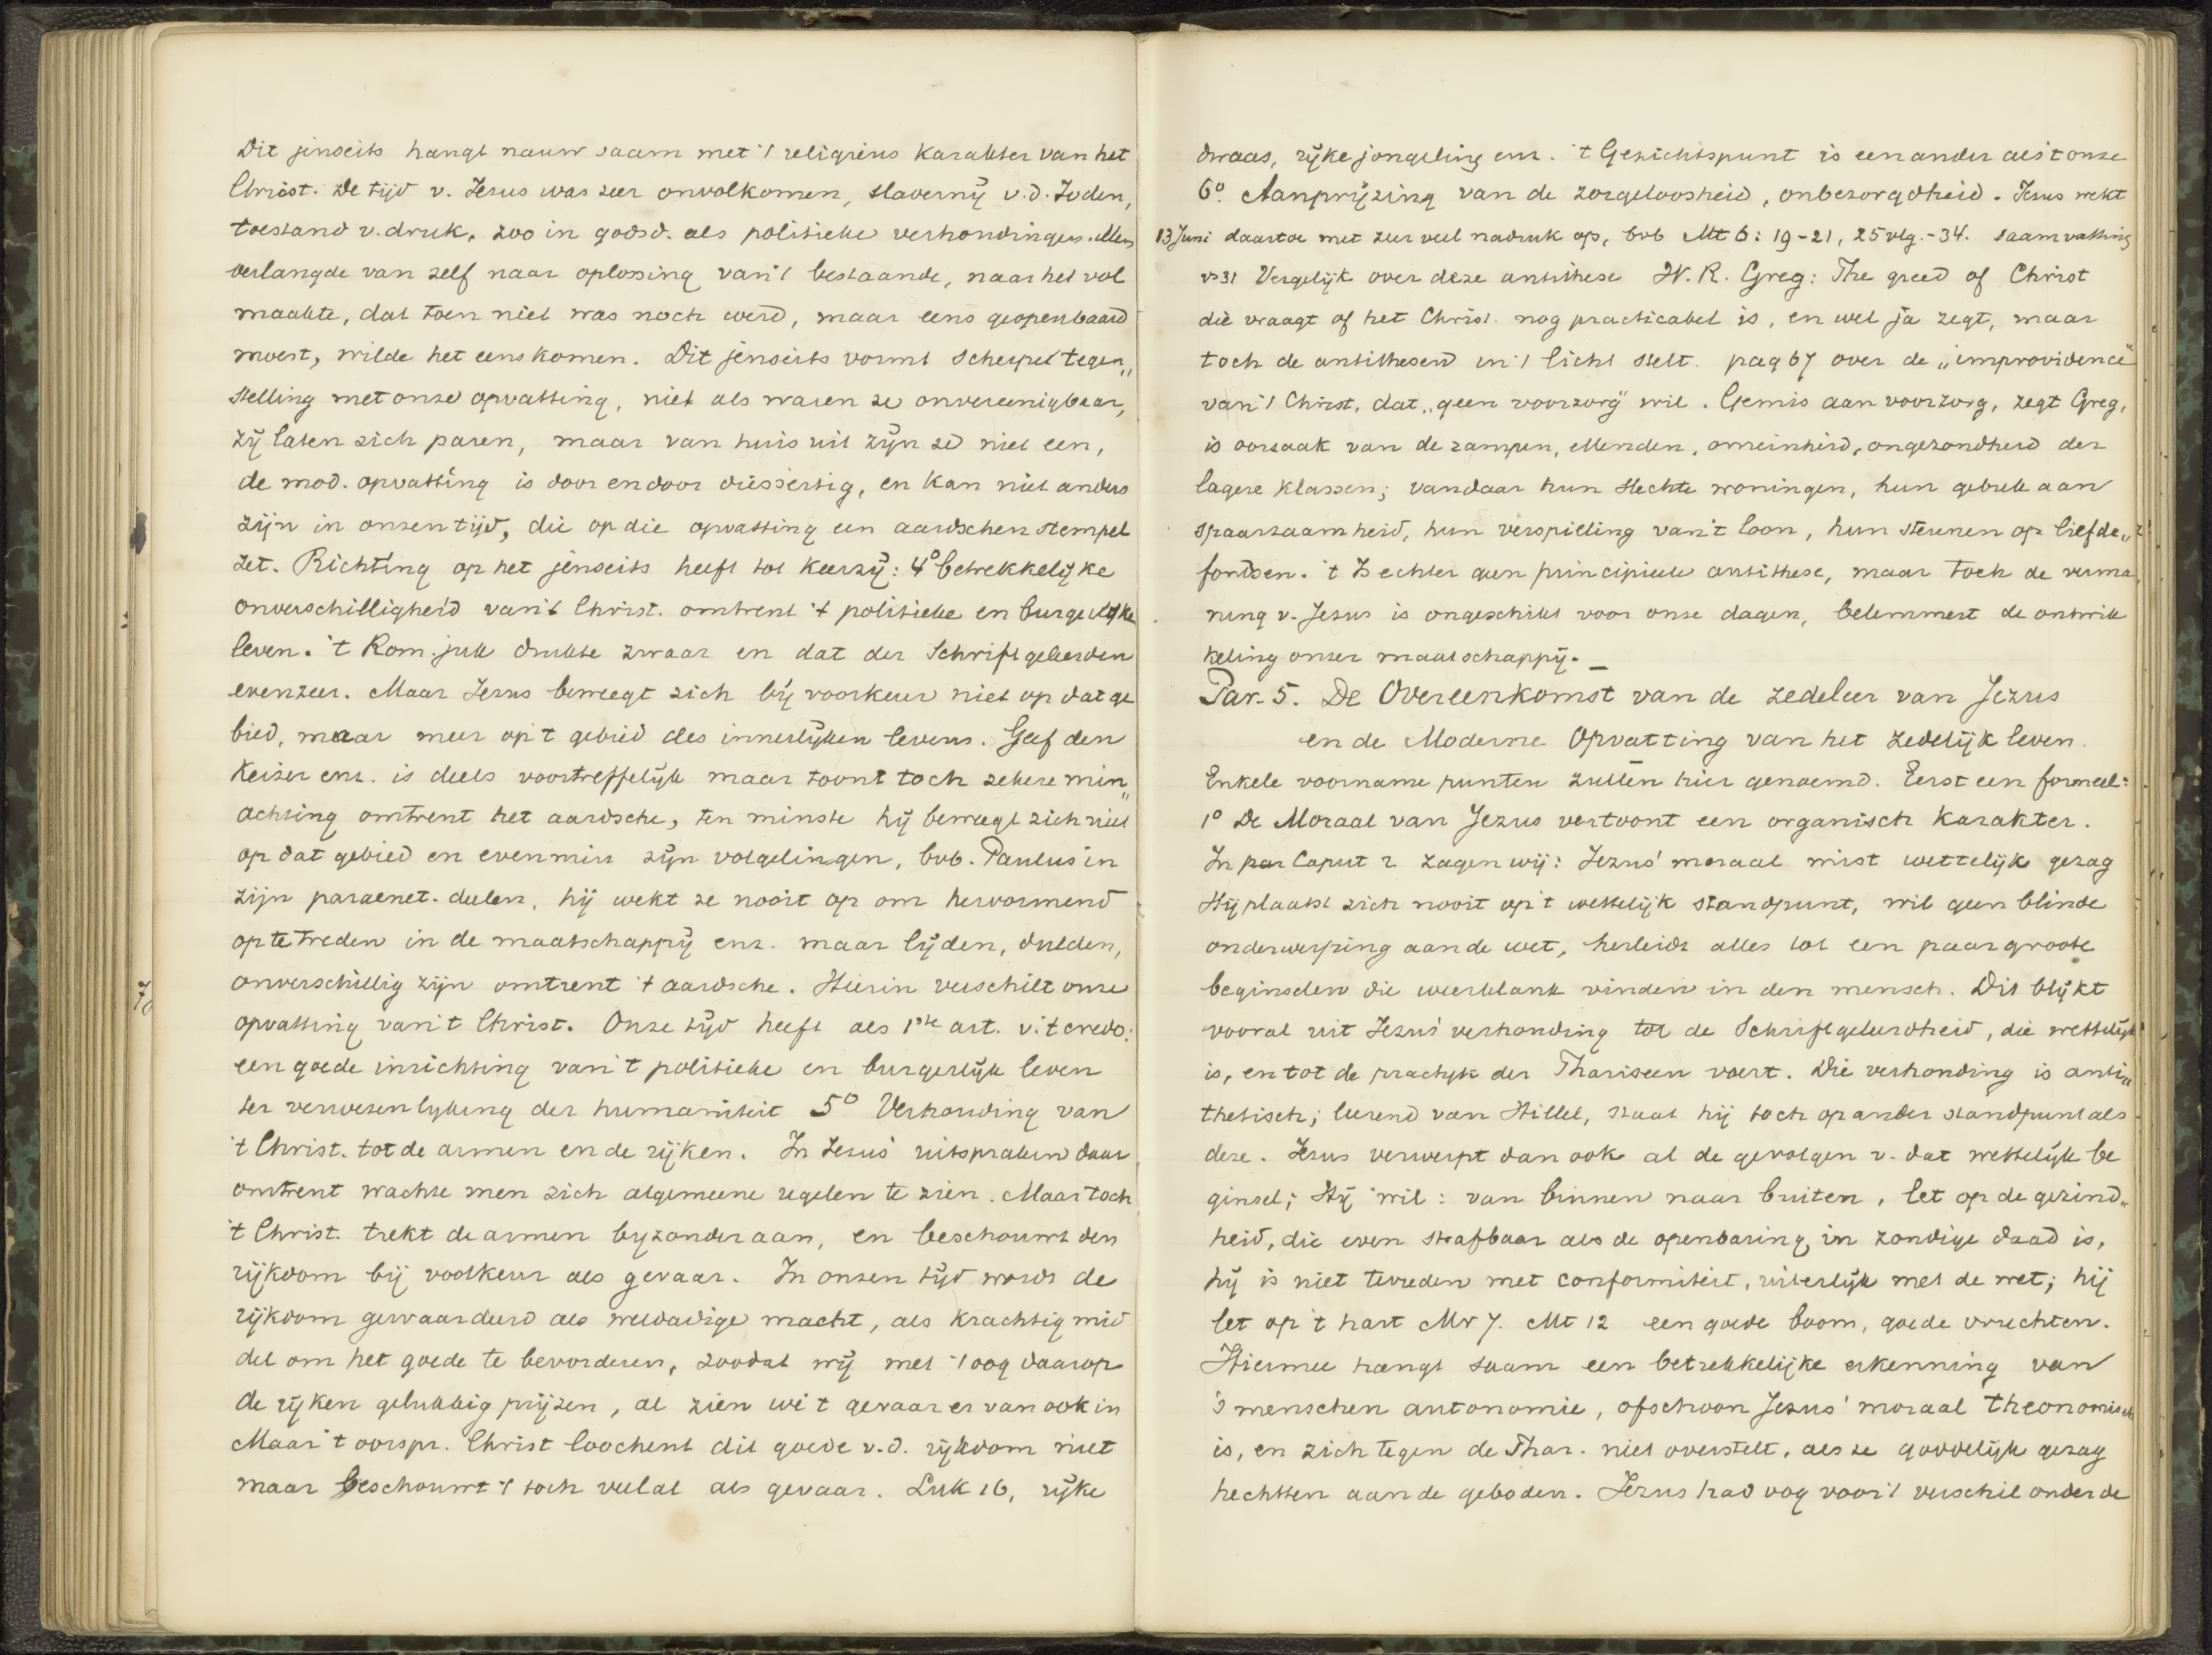 Dit jenseits hangt nauw saam met 't religieus karakter van het
Christ. De tijd v. Jesus was zeer onvolkomen, slavernij v.d. Joden,
toestand v. druk, zoo in godsd. als politieke verhoudingen. Men
verlangde van zelf naar oplossing van 't bestaande, naar het vol
maakte, dat toen niet was noch werd, maar eens geopenbaard
moest, wilde het eens komen. Dit jenseits vormt scherpe tegen„
stelling met onze opvatting, niet als waren ze onvereenigbaar,
zij laten zich paren, maar van huis uit zijn ze niet een,
de mod. opvatting is door en door diesseitig, en kan niet anders
zijn in onzen tijd, die op die opvatting een aardschen stempel
zet. Richting op het jenseits heeft tot keerzij: 4o betrekkelijke
onverschilligheid van 't Christ. omtrent 't politieke en burgerlijke
leven. 't Rom. juk drukte zwaar en dat der Schriftgeleerden
evenzeer. Maar Jesus beweegt zich bij voorkeur niet op dat ge
bied, maar meer op 't gebied des innerlijken levens. Geef den
Keizer enz. is deels voortreffelijk maar toont toch zekere min„
achting omtrent het aardsche, ten minste hij beweegt zich niet
op dat gebied en evenmin zijn volgelingen, bvb. Paulus in
zijn paraenet. deelen, hij wekt ze nooit op om hervormend
op te treden in de maatschappij enz. maar lijden, dulden,
onverschillig zijn omtrent 't aardsche. Hierin verschilt onze
opvatting van 't Christ. Onze tijd heeft als 1ste art. v. 't credo:
een goede inrichting van 't politieke en burgerlijk leven
ter verwezenlijking der humaniteit 5o Verhouding van
't Christ. tot de armen en de rijken. In Jesus' uitspraken daar
omtrent wachte men zich algemeene regelen te zien. Maar toch
't Christ. trekt de armen byzonder aan, en beschouwt den
rijkdom bij voorkeur als gevaar. In onzen tijd wordt de
rijkdom gewaardeerd als weldadige macht, als krachtig mid
del om het goede te bevorderen, zoodat wij met 't oog daarop
de rijken gelukkig prijzen, al zien we 't gevaar er van ook in
Maar 't oorspr. Christ loochent dit goede v.d. rijkdom niet
maar beschouwt 't toch veelal als gevaar. Luk 16, rijke
dwaas, rijke jongeling enz. 't Gezichtspunt is een ander als 't onze
6o. Aanprijzing van de zorgeloosheid, onbezorgdheid. Jesus wekt
13 Juni daartoe met zeer veel nadruk op, bvb Mt 6: 19-21, 25 vlg.-34. saamvatting
vs 31 Vergelijk over deze antithese W. R. Greg: The greed of Christ
die vraagt of het Christ. nog practicabel is, en wel ja zegt, maar
toch de antithesen in 't licht stelt. pag 67 over de „improvidence"
van 't Christ, dat „geen voorzorg" wil. Gemis aan voorzorg, zegt Greg,
is oorzaak van de rampen, ellenden, onreinheid, ongezondheid der
lagere klassen; vandaar hun slechte woningen, hun gebrek aan
spaarzaamheid, hun verspilling van 't loon, hun steunen op liefde„
fondsen. 't Is echter geen principieele antithese, maar toch de verma„
ning v. Jesus is ongeschikt voor onze dagen, belemmert de ontwik
keling onzer maatschappij. _
Par. 5. De Overeenkomst van de zedeleer van Jezus
en de Moderne Opvatting van het zedelijk leven.
Enkele voorname punten zullen hier genoemd. Eerst een formeel:
1o De Moraal van Jezus vertoont een organisch karakter.
In par Caput 2 zagen wij: Jezus' moraal mist wettelijk gezag
Hij plaatst zich nooit op 't wettelijk standpunt, wil geen blinde
onderwerping aan de wet, herleidt alles tot een paar groote
beginselen die weerklank vinden in den mensch. Dit blijkt
vooral uit Jezus' verhouding tot de Schriftgeleerdheid, die wettelijk
is, en tot de practijk der Phariseen voert. Die verhouding is anti„
thetisch; leerend van Hillel, staat hij toch op ander standpunt als
deze. Jesus verwerpt dan ook al de gevolgen v. dat wettelijk be
ginsel; Hij wil: van binnen naar buiten, let op de gezind„
heid, die even strafbaar als de openbaring in zondige daad is,
hij is niet tevreden met conformiteit, uiterlijk met de wet; hij
let op 't hart Mr 7. Mt 12 een goede boom, goede vruchten.
Hiermee hangt saam een betrekkelijke erkenning van
's menschen autonomie, ofschoon Jesus' moraal theonomisch
is, en zich tegen de Phar. niet overstelt, als ze goddelijk gezag
hechtten aan de geboden. Jezus had oog voor 't verschil onder de